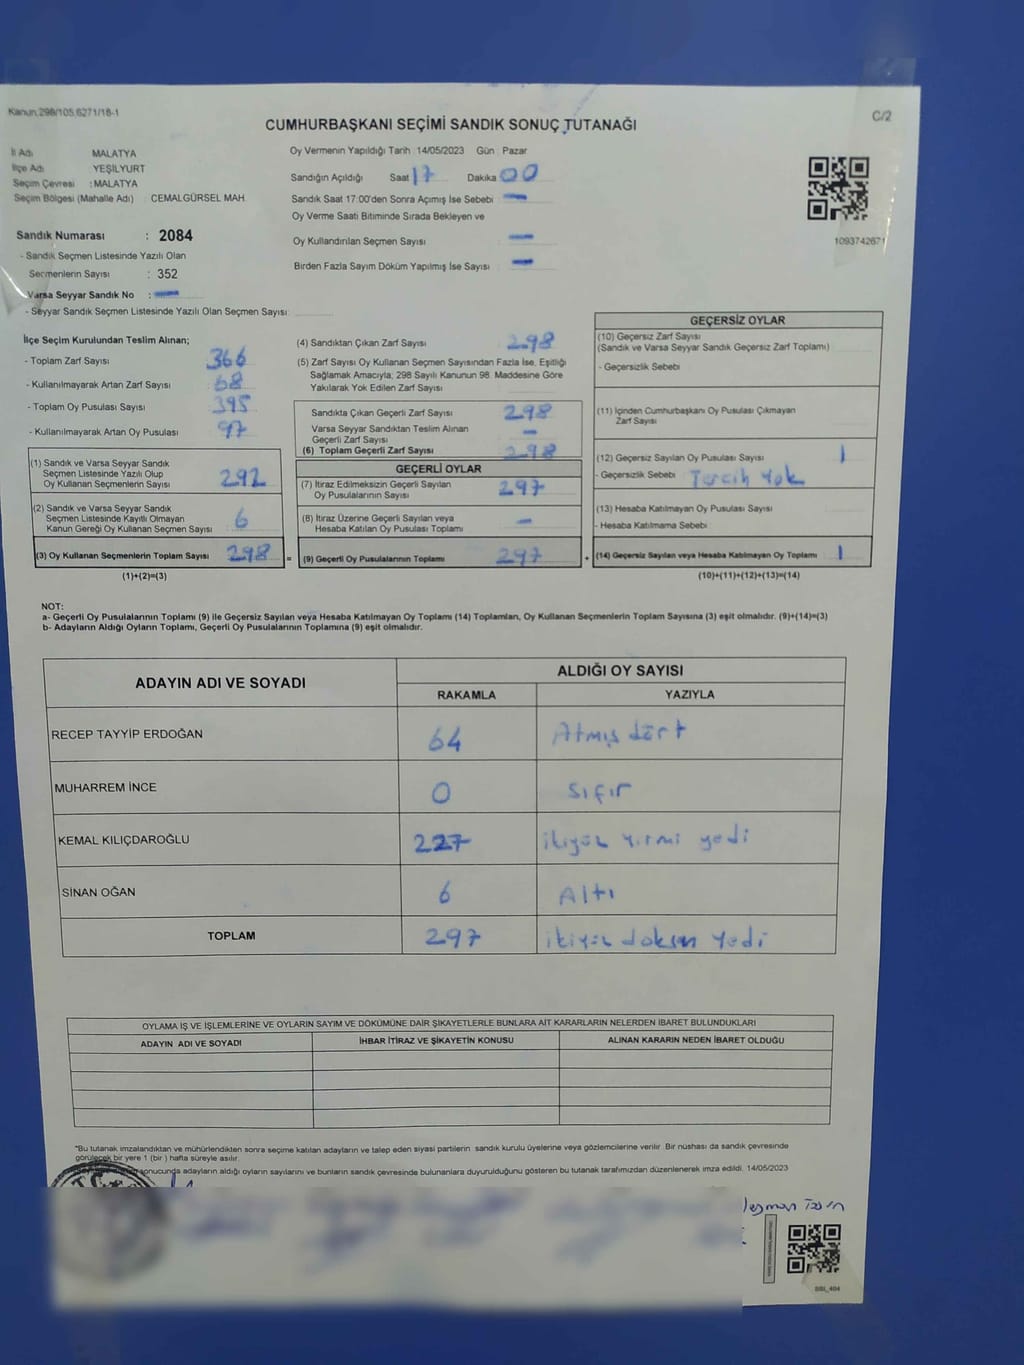 Kanun.298/105,6271/18-1
C/2
CUMHURBAŞKANI SEÇİMİ SANDIK SONUÇ TUTANAĞI
İl Adı MALATYA
İlçe Adı YEŞİLYURT
Seçim Çevresi : MALATYA
Seçim Bölgesi (Mahalle Adı) CEMALGÜRSEL MAH.
Sandık Numarası : 2084
- Sandık Seçmen Listesinde Yazılı Olan
Seçmenlerin Sayısı : 352
Varsa Seyyar Sandık No : —
- Seyyar Sandık Seçmen Listesinde Yazılı Olan Seçmen Sayısı:
Oy Vermenin Yapıldığı Tarih : 14/05/2023 Gün : Pazar
Sandığın Açıldığı Saat 17 Dakika 00
Sandık Saat 17:00'den Sonra Açımış İse Sebebi —
Oy Verme Saati Bitiminde Sırada Bekleyen ve
Oy Kullandırılan Seçmen Sayısı —
Birden Fazla Sayım Döküm Yapılmış İse Sayısı —
1093742671
İlçe Seçim Kurulundan Teslim Alınan;
- Toplam Zarf Sayısı 366
- Kullanılmayarak Artan Zarf Sayısı 68
- Toplam Oy Pusulası Sayısı 395
- Kullanılmayarak Artan Oy Pusulası 97
(1) Sandık ve Varsa Seyyar Sandık
Seçmen Listesinde Yazılı Olup
Oy Kullanan Seçmenlerin Sayısı 292
(2) Sandık ve Varsa Seyyar Sandık
Seçmen Listesinde Kayıtlı Olmayan
Kanun Gereği Oy Kullanan Seçmen Sayısı 6
(3) Oy Kullanan Seçmenlerin Toplam Sayısı 298 =
(1)+(2)=(3)
(4) Sandıktan Çıkan Zarf Sayısı 298
(5) Zarf Sayısı Oy Kullanan Seçmen Sayısından Fazla İse, Eşitliği
Sağlamak Amacıyla; 298 Sayılı Kanunun 98. Maddesine Göre
Yakılarak Yok Edilen Zarf Sayısı
Sandıkta Çıkan Geçerli Zarf Sayısı 298
Varsa Seyyar Sandıktan Teslim Alınan
Geçerli Zarf Sayısı —
(6) Toplam Geçerli Zarf Sayısı 298
GEÇERLİ OYLAR
(7) İtiraz Edilmeksizin Geçerli Sayılan
Oy Pusulalarının Sayısı 297
(8) İtiraz Üzerine Geçerli Sayılan veya
Hesaba Katılan Oy Pusulası Toplamı —
(9) Geçerli Oy Pusulalarının Toplamı 297 +
GEÇERSİZ OYLAR
(10) Geçersiz Zarf Sayısı
(Sandık ve Varsa Seyyar Sandık Geçersiz Zarf Toplamı)
- Geçersizlik Sebebi
(11) İçinden Cumhurbaşkanı Oy Pusulası Çıkmayan
Zarf Sayısı
(12) Geçersiz Sayılan Oy Pusulası Sayısı 1
- Geçersizlik Sebebi Tercih Yok
(13) Hesaba Katılmayan Oy Pusulası Sayısı
- Hesaba Katılmama Sebebi
(14) Geçersiz Sayılan veya Hesaba Katılmayan Oy Toplamı 1
(10)+(11)+(12)+(13)=(14)
NOT:
a- Geçerli Oy Pusulalarının Toplamı (9) ile Geçersiz Sayılan veya Hesaba Katılmayan Oy Toplamı (14) Toplamları, Oy Kullanan Seçmenlerin Toplam Sayısına (3) eşit olmalıdır. (9)+(14)=(3)
b- Adayların Aldığı Oyların Toplamı, Geçerli Oy Pusulalarının Toplamına (9) eşit olmalıdır.
ADAYIN ADI VE SOYADI ALDIĞI OY SAYISI
RAKAMLA YAZIYLA
RECEP TAYYİP ERDOĞAN 64 Atmış dört
MUHARREM İNCE 0 Sıfır
KEMAL KILIÇDAROĞLU 227 ikiyüz yirmi yedi
SİNAN OĞAN 6 Altı
TOPLAM 297 ikiyüz doksan yedi
OYLAMA İŞ VE İŞLEMLERİNE VE OYLARIN SAYIM VE DÖKÜMÜNE DAİR ŞİKAYETLERLE BUNLARA AİT KARARLARIN NELERDEN İBARET BULUNDUKLARI
ADAYIN ADI VE SOYADI İHBAR İTİRAZ VE ŞİKAYETİN KONUSU ALINAN KARARIN NEDEN İBARET OLDUĞU
*Bu tutanak imzalandıktan ve mühürlendikten sonra seçime katılan adayların ve talep eden siyasi partilerin sandık kurulu üyelerine veya gözlemcilerine verilir. Bir nüshası da sandık çevresinde
görülecek bir yere 1 (bir) hafta süreyle asılır.
sonucunda adayların aldığı oyların sayılarını ve bunların sandık çevresinde bulunanlara duyurulduğunu gösteren bu tutanak tarafımızdan düzenlenerek imza edildi. 14/05/2023